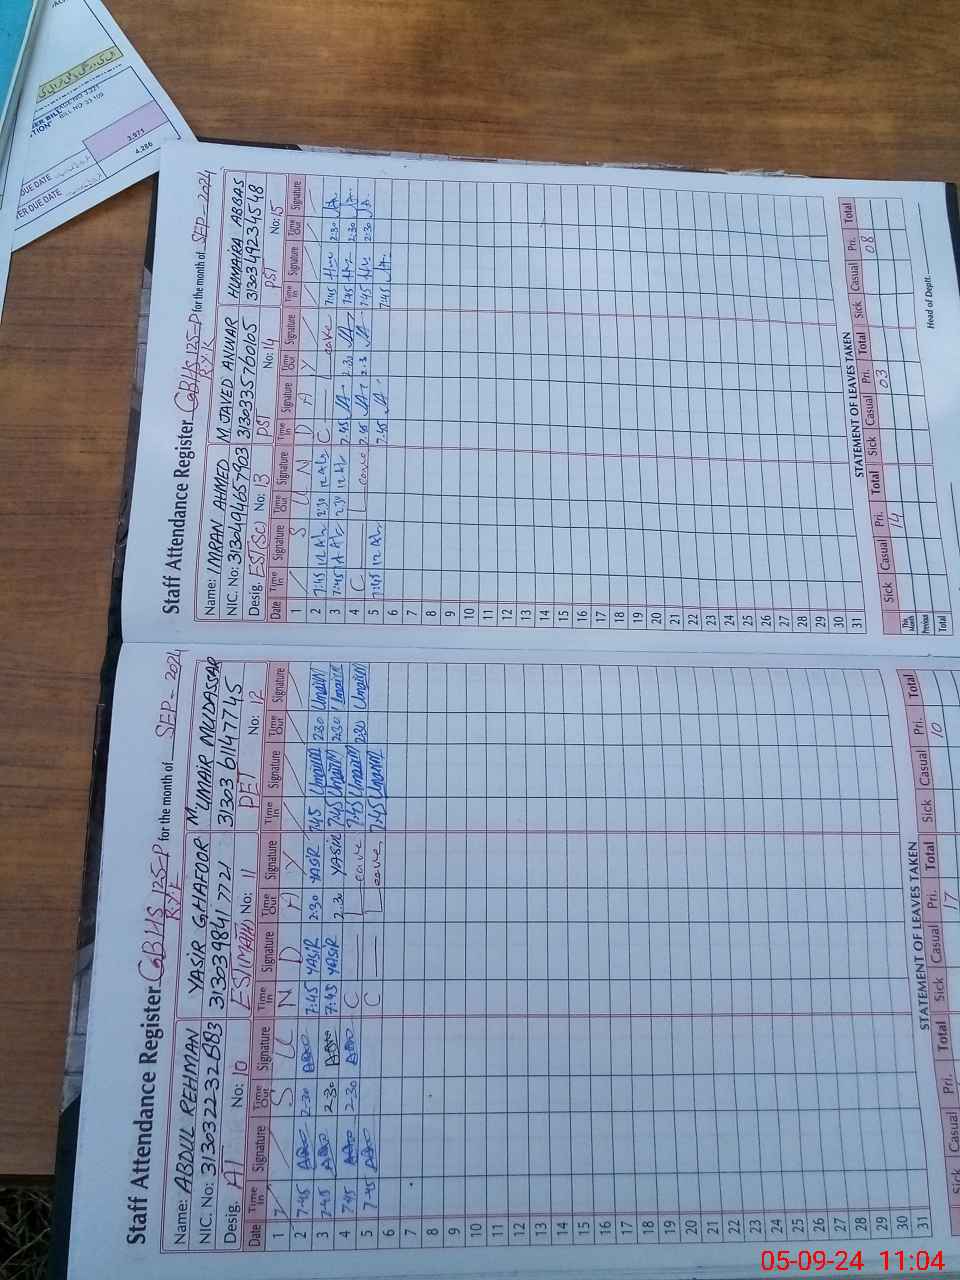 Staff Attendance Register GBHS 125-P for the month of SEP - 2024
R.Y.K
Name: ABDUL REHMAN YASIR G,HAFOOR M UMAIR MUDASSAR
NIC. No: 31303 9841 7721 31303 6114774 5
Desig. AT No: 10 EST(MATH) No: 11 PET No: 12
Date Time In Signature Time Out Signature Time In Signature Time Out Signature Time In Signature Time Out Signature
1 S U N D A Y
2 7:45 2:30 7:45 YASIR 2:30 YASIR 7:45 Umair 2:30 Umair
3 7:45 2:30 7:45 YASIR 2:30 YASIR 7:45 Umair 2:30 Umair
4 7:45 2:30 C Leave 7:45 Umair 2:30 Umair
5 7:45 C Leave 7:45 Umair
6
7
8
9
10
11
12
13
14
15
16
17
18
19
20
21
22
23
24
25
26
27
28
29
30
31
STATEMENT OF LEAVES TAKEN
Sick Casual Pri. Total Sick Casual Pri. Total Sick Casual Pri. Total
17 10
Staff Attendance Register GBHS 125-P for the month of SEP - 2024
R.Y.K
Name: IMRAN AHMED M. JAVED ANWAR HUMAIRA ABBAS
NIC. No: 3130494657903 3130335700165 3130349234548
Desig. EST(SC) No: 13 PST No: 14 PST No: 15
Date Time In Signature Time Out Signature Time In Signature Time Out Signature Time In Signature Time Out Signature
1 S U N D A Y
2 7:45 2:30 C Leave 7:45 2:30
3 7:45 2:30 7:45 2:30 7:45 2:30
4 C Leave 7:45 2:3 7:45 2:30
5 7:45 7:45 7:45
6
7
8
9
10
11
12
13
14
15
16
17
18
19
20
21
22
23
24
25
26
27
28
29
30
31
STATEMENT OF LEAVES TAKEN
Sick Casual Pri. Total Sick Casual Pri. Total Sick Casual Pri. Total
This Month 14 03 08
Previous
Total
Head of Deptt.
BILL NO
DUE DATE 3,971
DUE DATE 4,286
05-09-24 11:04